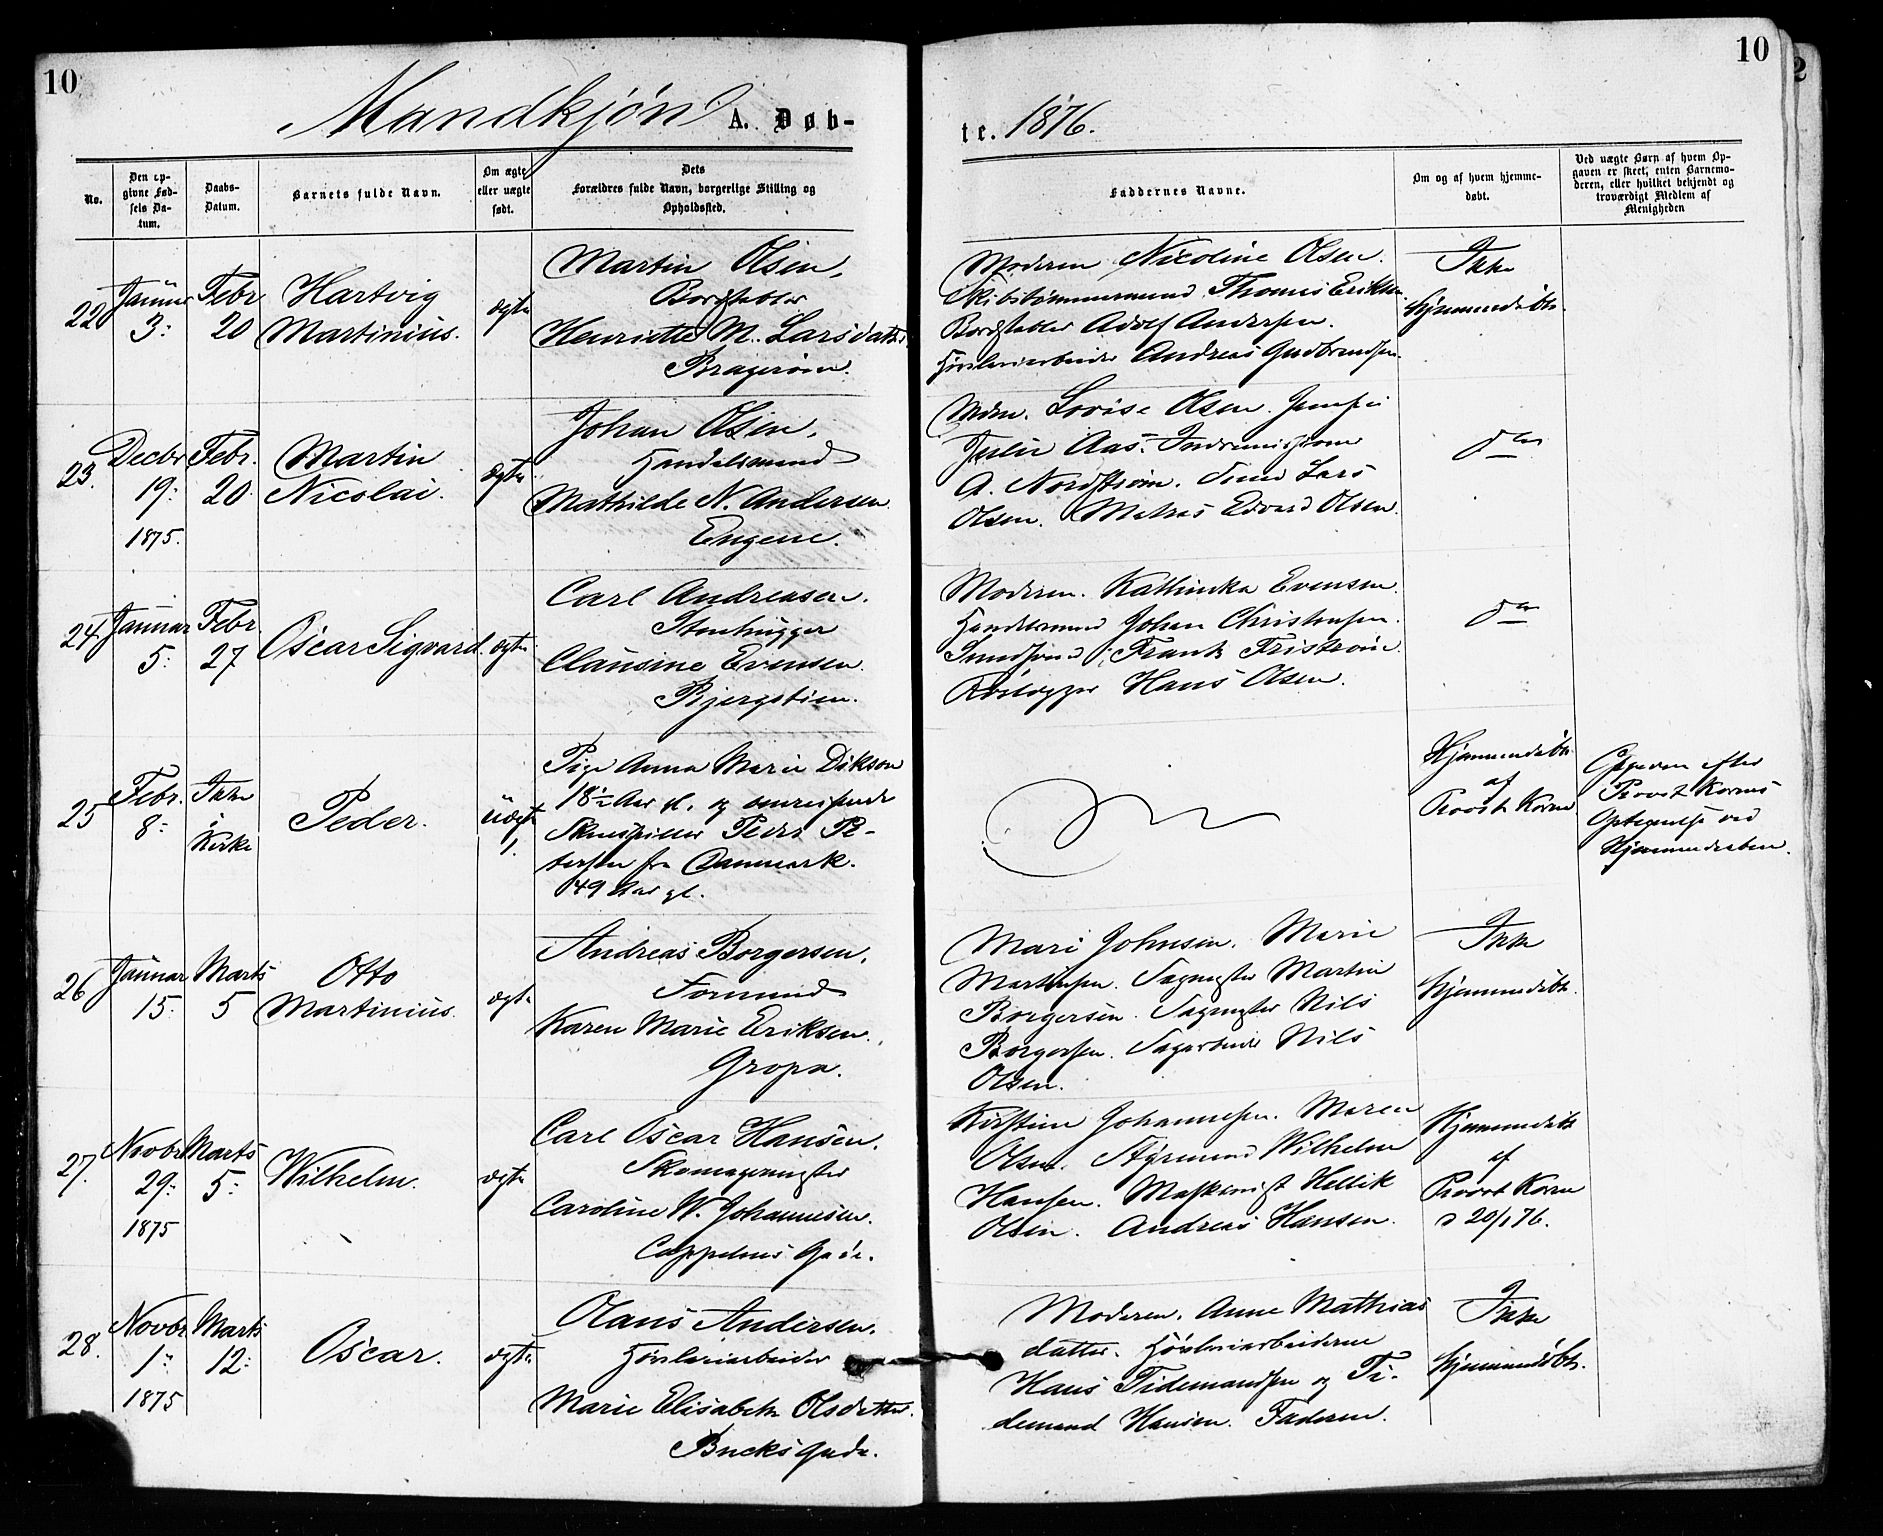 10
10
Mandkjøn A. Døb-
te. 1876.
No.
Den op-
givne Fød-
sels Da-
tum.
Daabs-
Datum.
Barnets fulde Navn.
Om ægte
eller uægte
født.
Dets
Forældres fulde Navn, borgerlige Stilling og
Opholdssted.
Faddernes Navne.
Om og af hvem hjemme-
døbt.
Ved uægte Børn af hvem Op-
gaven er skeet, enten Barnemo-
deren, eller hvilket bekjendt og
troværdigt Medlem af
Menigheden
22
Januar
3.
Febr
20
Hartvig
Martinius.
ægte
Martin Olsen,
Bordstabler
Henriette M. Larsdatter
Bragerøen.
Moderen Nicoline Olsen.
Skibstømmermand Thomes Eriksen
Bordstabler Adolf Andersen.
Høvleriarbeider Andreas Gudbrandsen.
Ikke
Hjemmedøbt.
23.
Decbr
19.
1875.
Febr.
20.
Martin
Nicolai.
ægte
Johan Olsen,
Handelsmand
Mathilde N. Andersen
Engene.
Mdrn. Lovise Olsen. Jomfru
Julie Aas.
A. Nordstrøm. Lars
Olsen. Edvard Olsen.
do
24.
Januar
5.
Febr.
27
Oscar Sigvard.
ægte
Carl Andreasen.
Stenhugger
Clausine Evensen.
Bjergstien.
Moderen. Kathinka Evensen
Handelsmand Johan Christensen.
Frank Friström.
Hans Olsen.
do
25
Febr.
8.
Ikke
i
Kirke
Peder.
uægte
Pige Anna Marie Dikson
18½ Aar gl. og omreisende
Skuespiller Peder Pe-
tersen fra Danmark.
49 Aar gl.
Hjemmedøbt
af
Provst Korne
Opgiven efter
Provst Kornes
Optegnelse ved
Hjemmedaaben.
26
Januar
15.
Marts
5
Otto
Martinius.
ægte
Andreas Borgersen,
Formand
Karen Marie Eriksen,
Gropa.
Mari Johnsen. Marie
Martinsen. Sagmester Martin
Borgersen. Sagmester Nils
Borgersen. Sagarbeider Nils
Olsen.
Ikke
Hjemmedøbt.
27.
Novbr
29.
1875
Marts
5.
Wilhelm.
ægte
Carl Oscar Hansen.
Skomagermester
Caroline W. Johannesen.
Cappelens Gade.
Kirstine Johannesen. Maren
Olsen. Styrmand Wilhelm
Hansen. Maskinist Hellik
Olsen. Andreas Hansen.
Hjemmedøbt
af
Provst Korne
d 20/1 76.
28.
Novbr.
1.
1875
Marts
12.
Oscar.
ægte
Olaus Andersen.
Høvleriarbeider
Marie Elisabeth Olsdatter.
Bucks Gade.
Moderen. Anne Mathias
datter. Høvleriarbeiderne
Hans Tidemandsen og Ti-
demand Hansen. Faderen.
Ikke
Hjemmedøbt.